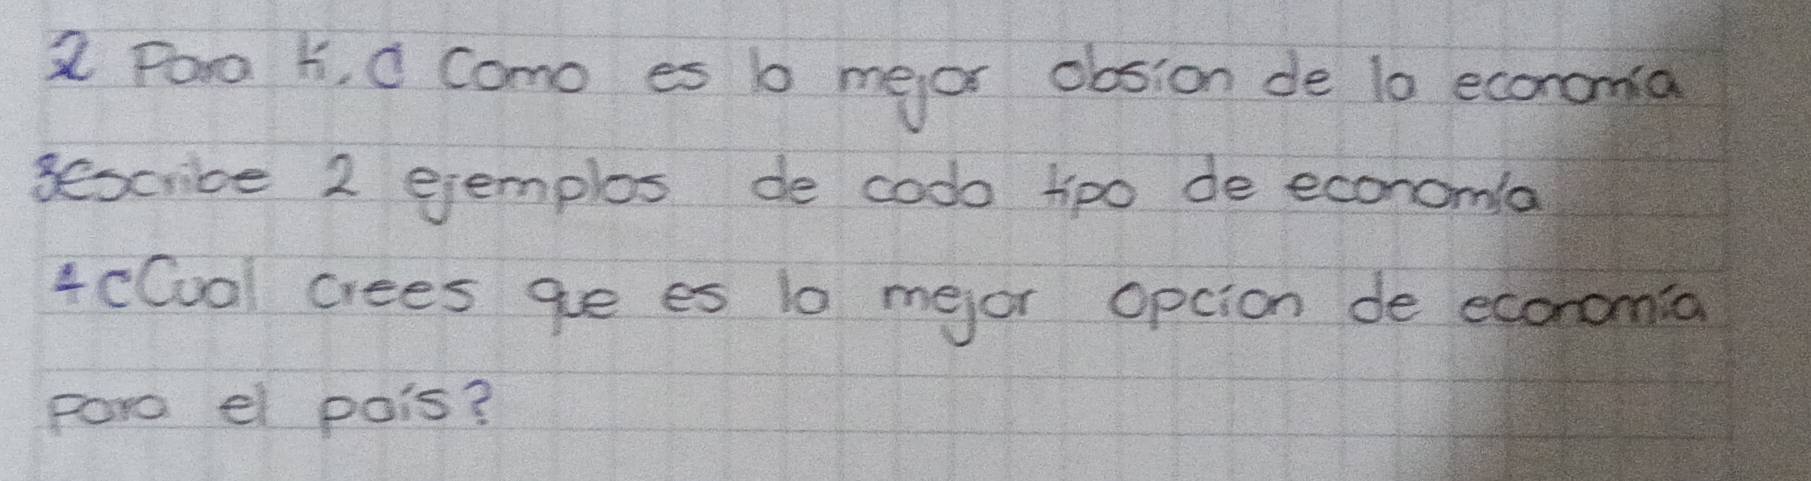 2 Para ti, ¿ Como es la mejor obsion de la economía
3escribe 2 ejemplos de cada tipo de economía
4 ¿Cual crees que es la mejor opcion de economía
para el país?